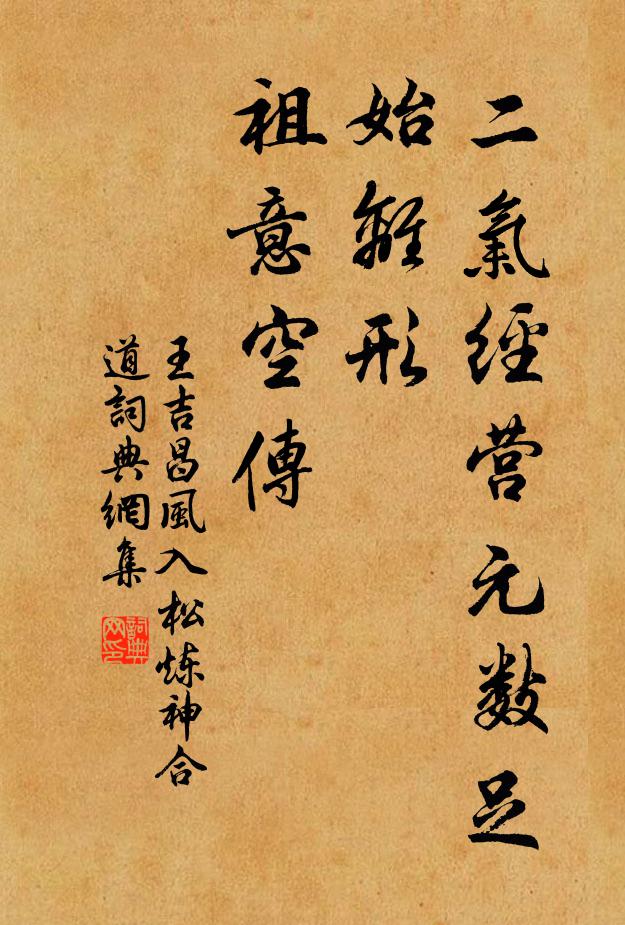 二氣經营元数足
始離形
祖意空傳
王吉昌風入松炼神合
道詞典網集
詞典网印